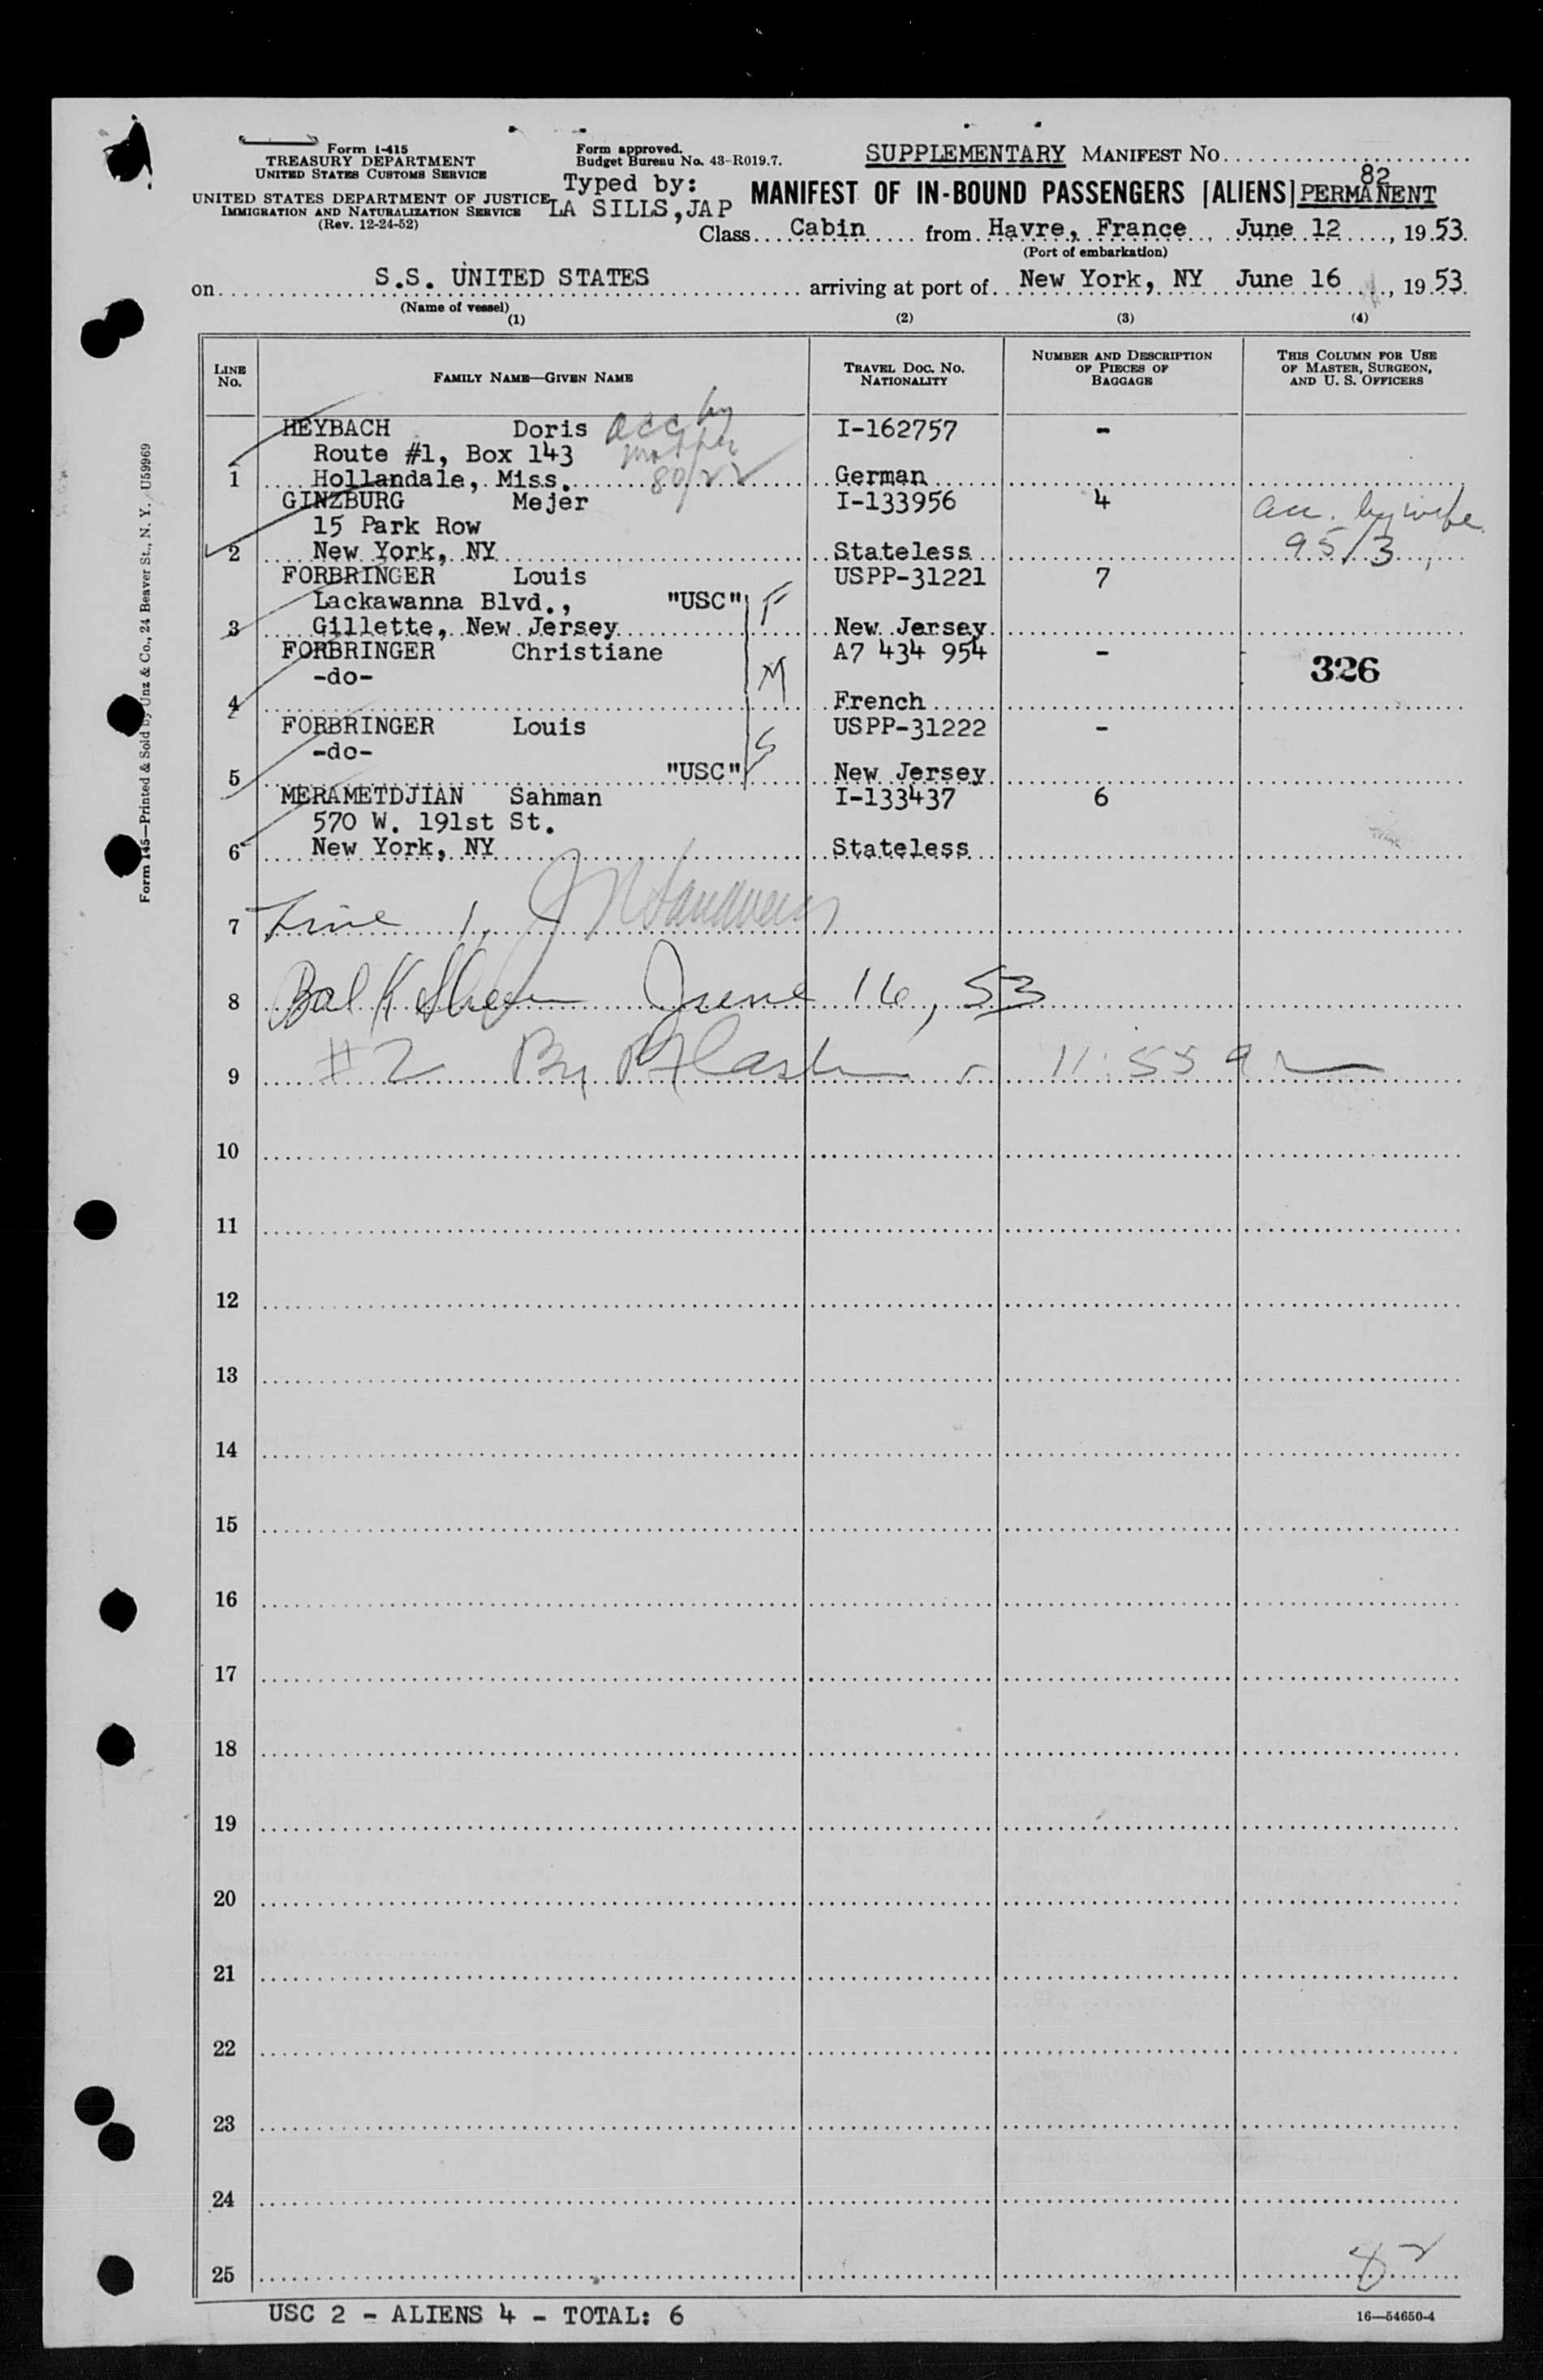 Form I-415
TREASURY DEPARTMENT
UNITED STATES CUSTOMS SERVICE
UNITED STATES DEPARTMENT OF JUSTICE
IMMIGRATION AND NATURALIZATION SERVICE
(Rev. 12-24-52)
Form approved.
Budget Bureau No. 43-R019.7.
Typed by:
LA SILLS, JAP
SUPPLEMENTARY MANIFEST NO.
82
MANIFEST OF IN-BOUND PASSENGERS [ALIENS] PERMANENT
Class Cabin from Havre, France June 12, 1953.
(Port of embarkation)
on S.S. UNITED STATES arriving at port of New York, NY June 16, 1953.
(Name of vessel)
(1) (2) (3) (4)
LINE NO.
FAMILY NAME—GIVEN NAME
TRAVEL DOC. NO. NATIONALITY
NUMBER AND DESCRIPTION OF PIECES OF BAGGAGE
THIS COLUMN FOR USE OF MASTER, SURGEON, AND U. S. OFFICERS
HEYBACH Doris acc by I-162757 -
Route #1, Box 143 mother
1 Hollandale, Miss. 80/22 German
GINZBURG Mejer I-133956 4 acc. by wife
15 Park Row
2 New York, NY Stateless 95/3
FORBRINGER Louis USPP-31221 7
Lackawanna Blvd., "USC" F
3 Gillette, New Jersey New Jersey
FORBRINGER Christiane A7 434 954 - 326
-do- M
4 French
FORBRINGER Louis USPP-31222 -
-do- S
5 "USC" New Jersey
MERAMETDJIAN Sahman I-133437 6
570 W. 191st St.
6 New York, NY Stateless
7 Line 1,
8 Bal June 16, 53
9 #2 By 11:55 a
10
11
12
13
14
15
16
17
18
19
20
21
22
23
24
25 82
USC 2 - ALIENS 4 - TOTAL: 6
16—54650-4
Form 145—Printed & Sold by Unz & Co., 24 Beaver St., N. Y. U59969